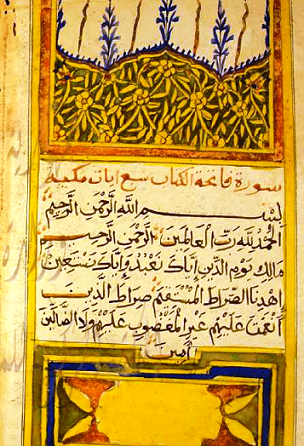 سورة فاتحة الكتاب سبع ايات مكية
بِسْمِ اللَّهِ الرَّحْمَنِ الرَّحِيمِ
الْحَمْدُ لِلَّهِ رَبِّ الْعَالَمِينَ الرَّحْمَنِ الرَّحِيمِ
مَالِكِ يَوْمِ الدِّينِ إِيَّاكَ نَعْبُدُ وَإِيَّاكَ نَسْتَعِينُ
اِهْدِنَا الصِّرَاطَ الْمُسْتَقِيمَ صِرَاطَ الَّذِينَ
أَنْعَمْتَ عَلَيْهِمْ غَيْرِ الْمَغْضُوبِ عَلَيْهِمْ وَلَا الضَّالِّينَ
آمين